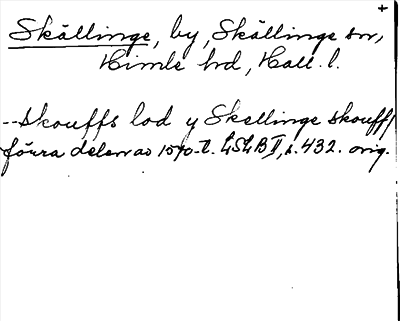 +
Skällinge, by, Skällinge sn,
Himle hd, Hall. l.
--skouffs lod y Skellinge skouff/
förra delen av 1570-t. LSLB II, s. 432. orig.